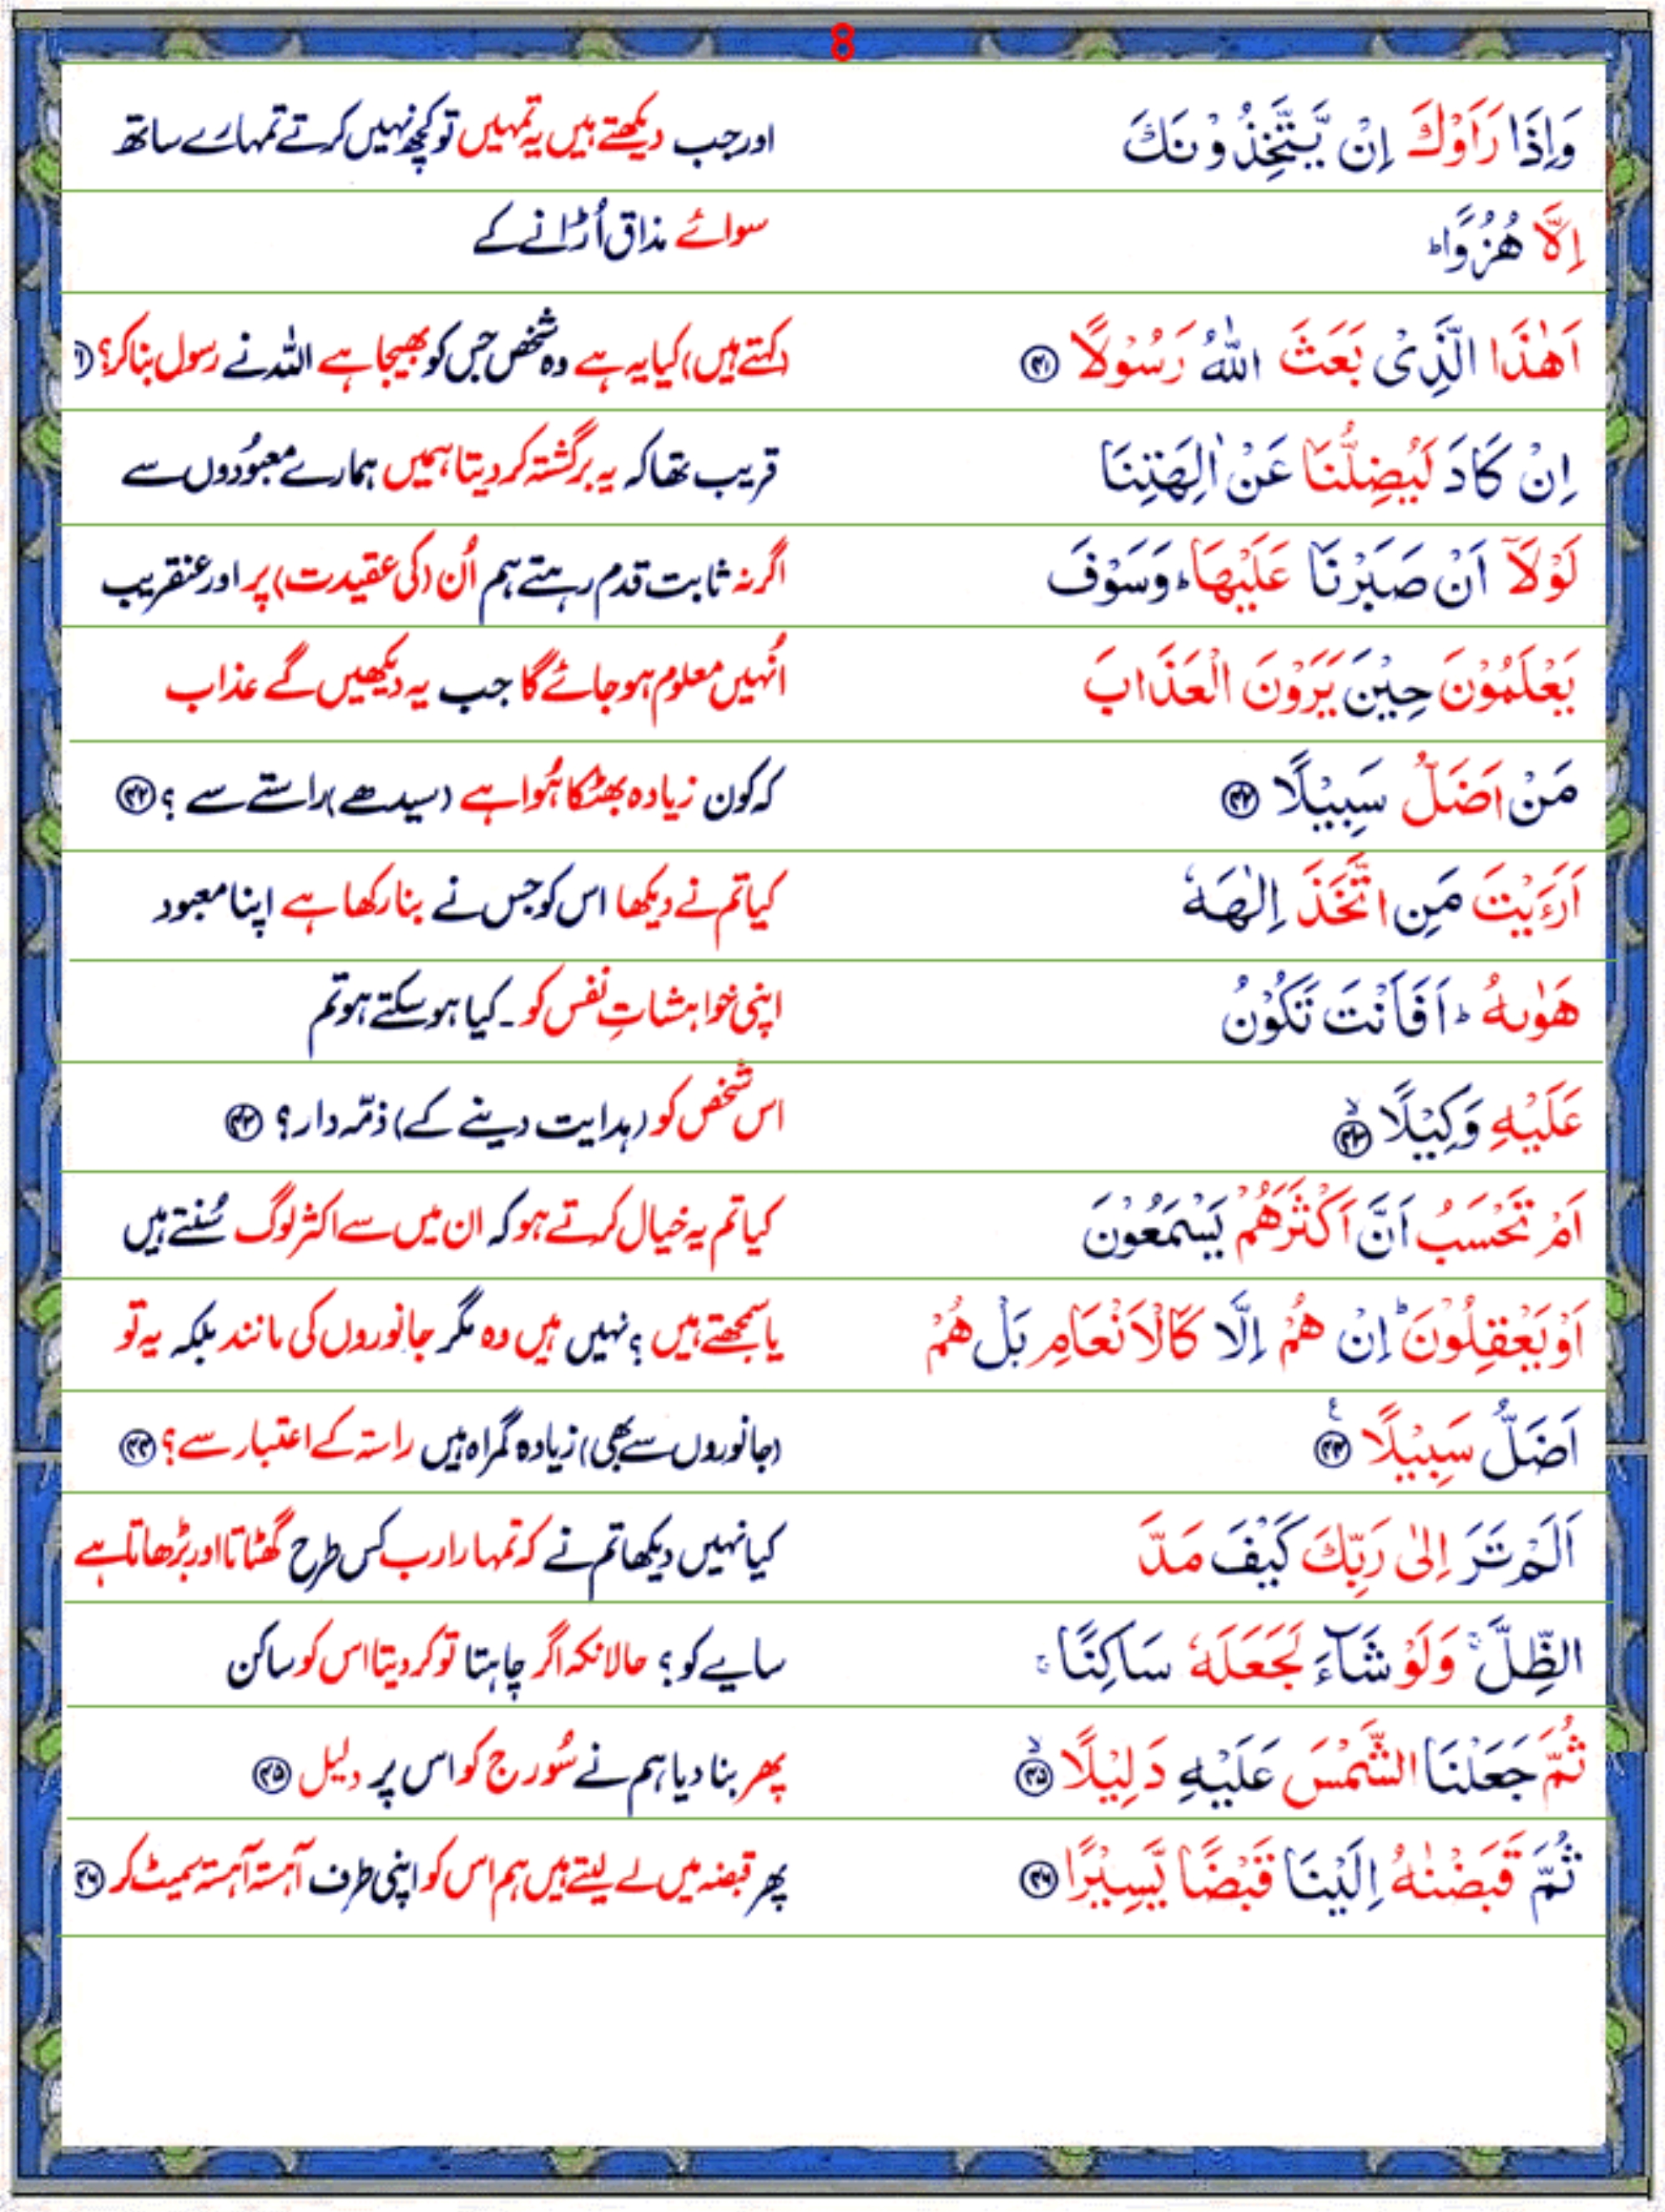 8
وَاِذَا رَاَوْكَ اِنْ يَّتَّخِذُوْنَكَ اور جب دیکھتے ہیں یہ تمہیں تو کچھ نہیں کرتے تمہارے ساتھ
اِلَّا هُزُوًا ؕ سوائے مذاق اُڑانے کے
اَهٰذَا الَّذِىْ بَعَثَ اللّٰهُ رَسُوْلًا ﴿۴۱﴾ (کہتے ہیں) کیا یہ ہے وہ شخص جس کو بھیجا ہے اللہ نے رسول بنا کر؟
اِنْ كَادَ لَيُضِلُّنَا عَنْ اٰلِهَتِنَا قریب تھا کہ یہ برگشتہ کر دیتا ہمیں ہمارے معبُودوں سے
لَوْلَاۤ اَنْ صَبَرْنَا عَلَيْهَا ؕ وَسَوْفَ اگر نہ ثابت قدم رہتے ہم اُن (کی عقیدت) پر اور عنقریب
يَعْلَمُوْنَ حِيْنَ يَرَوْنَ الْعَذَابَ اُنہیں معلوم ہو جائے گا جب یہ دیکھیں گے عذاب
مَنْ اَضَلُّ سَبِيْلًا ﴿۴۲﴾ کہ کون زیادہ بھٹکا ہُوا ہے (سیدھے) راستے سے ؟ ﴿۴۲﴾
اَرَءَيْتَ مَنِ اتَّخَذَ اِلٰهَهٗ کیا تم نے دیکھا اس کو جس نے بنا رکھا ہے اپنا معبود
هَوٰىهُ ؕ اَفَاَنْتَ تَكُوْنُ اپنی خواہشاتِ نفس کو ۔ کیا ہو سکتے ہو تم
عَلَيْهِ وَكِيْلًا ۙ﴿۴۳﴾ اس شخص کو (ہدایت دینے کے) ذمّہ دار؟ ﴿۴۳﴾
اَمْ تَحْسَبُ اَنَّ اَكْثَرَهُمْ يَسْمَعُوْنَ کیا تم یہ خیال کرتے ہو کہ ان میں سے اکثر لوگ سُنتے ہیں
اَوْ يَعْقِلُوْنَ ؕ اِنْ هُمْ اِلَّا كَالْاَنْعَامِ بَلْ هُمْ یا سمجھتے ہیں ؟ نہیں ہیں وہ مگر جانوروں کی مانند بلکہ یہ تو
اَضَلُّ سَبِيْلًا ﴿۴۴﴾ ع (جانوروں سے بھی) زیادہ گمراہ ہیں راستہ کے اعتبار سے ؟ ﴿۴۴﴾
اَلَمْ تَرَ اِلٰى رَبِّكَ كَيْفَ مَدَّ کیا نہیں دیکھا تم نے کہ تمہارا رب کس طرح گھٹاتا اور بڑھاتا ہے
الظِّلَّ ۚ وَلَوْ شَآءَ لَجَعَلَهٗ سَاكِنًا ۚ سایے کو ؟ حالانکہ اگر چاہتا تو کر دیتا اس کو ساکن
ثُمَّ جَعَلْنَا الشَّمْسَ عَلَيْهِ دَلِيْلًا ۙ﴿۴۵﴾ پھر بنا دیا ہم نے سُورج کو اس پر دلیل ﴿۴۵﴾
ثُمَّ قَبَضْنٰهُ اِلَيْنَا قَبْضًا يَّسِيْرًا ﴿۴۶﴾ پھر قبضہ میں لے لیتے ہیں ہم اس کو اپنی طرف آہستہ آہستہ سمیٹ کر ﴿۴۶﴾